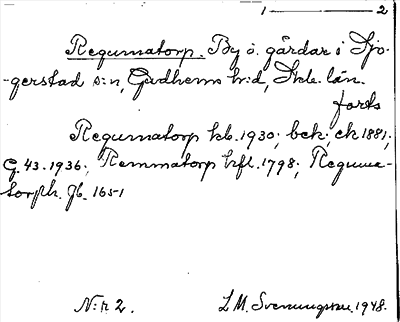 1 ——— 2
Regumatorp. By o. gårdar i Sjo-
gerstad s:n, Gudhems h:d, Skbs. län.
forts
Regumatorp kb. 1930; bek; ek 1881;
G. 43. 1936; Remmatorp hfl. 1798; Reguma-
torph. Jb. 1651
N:r 2.
L M. Svenungsson. 1948.